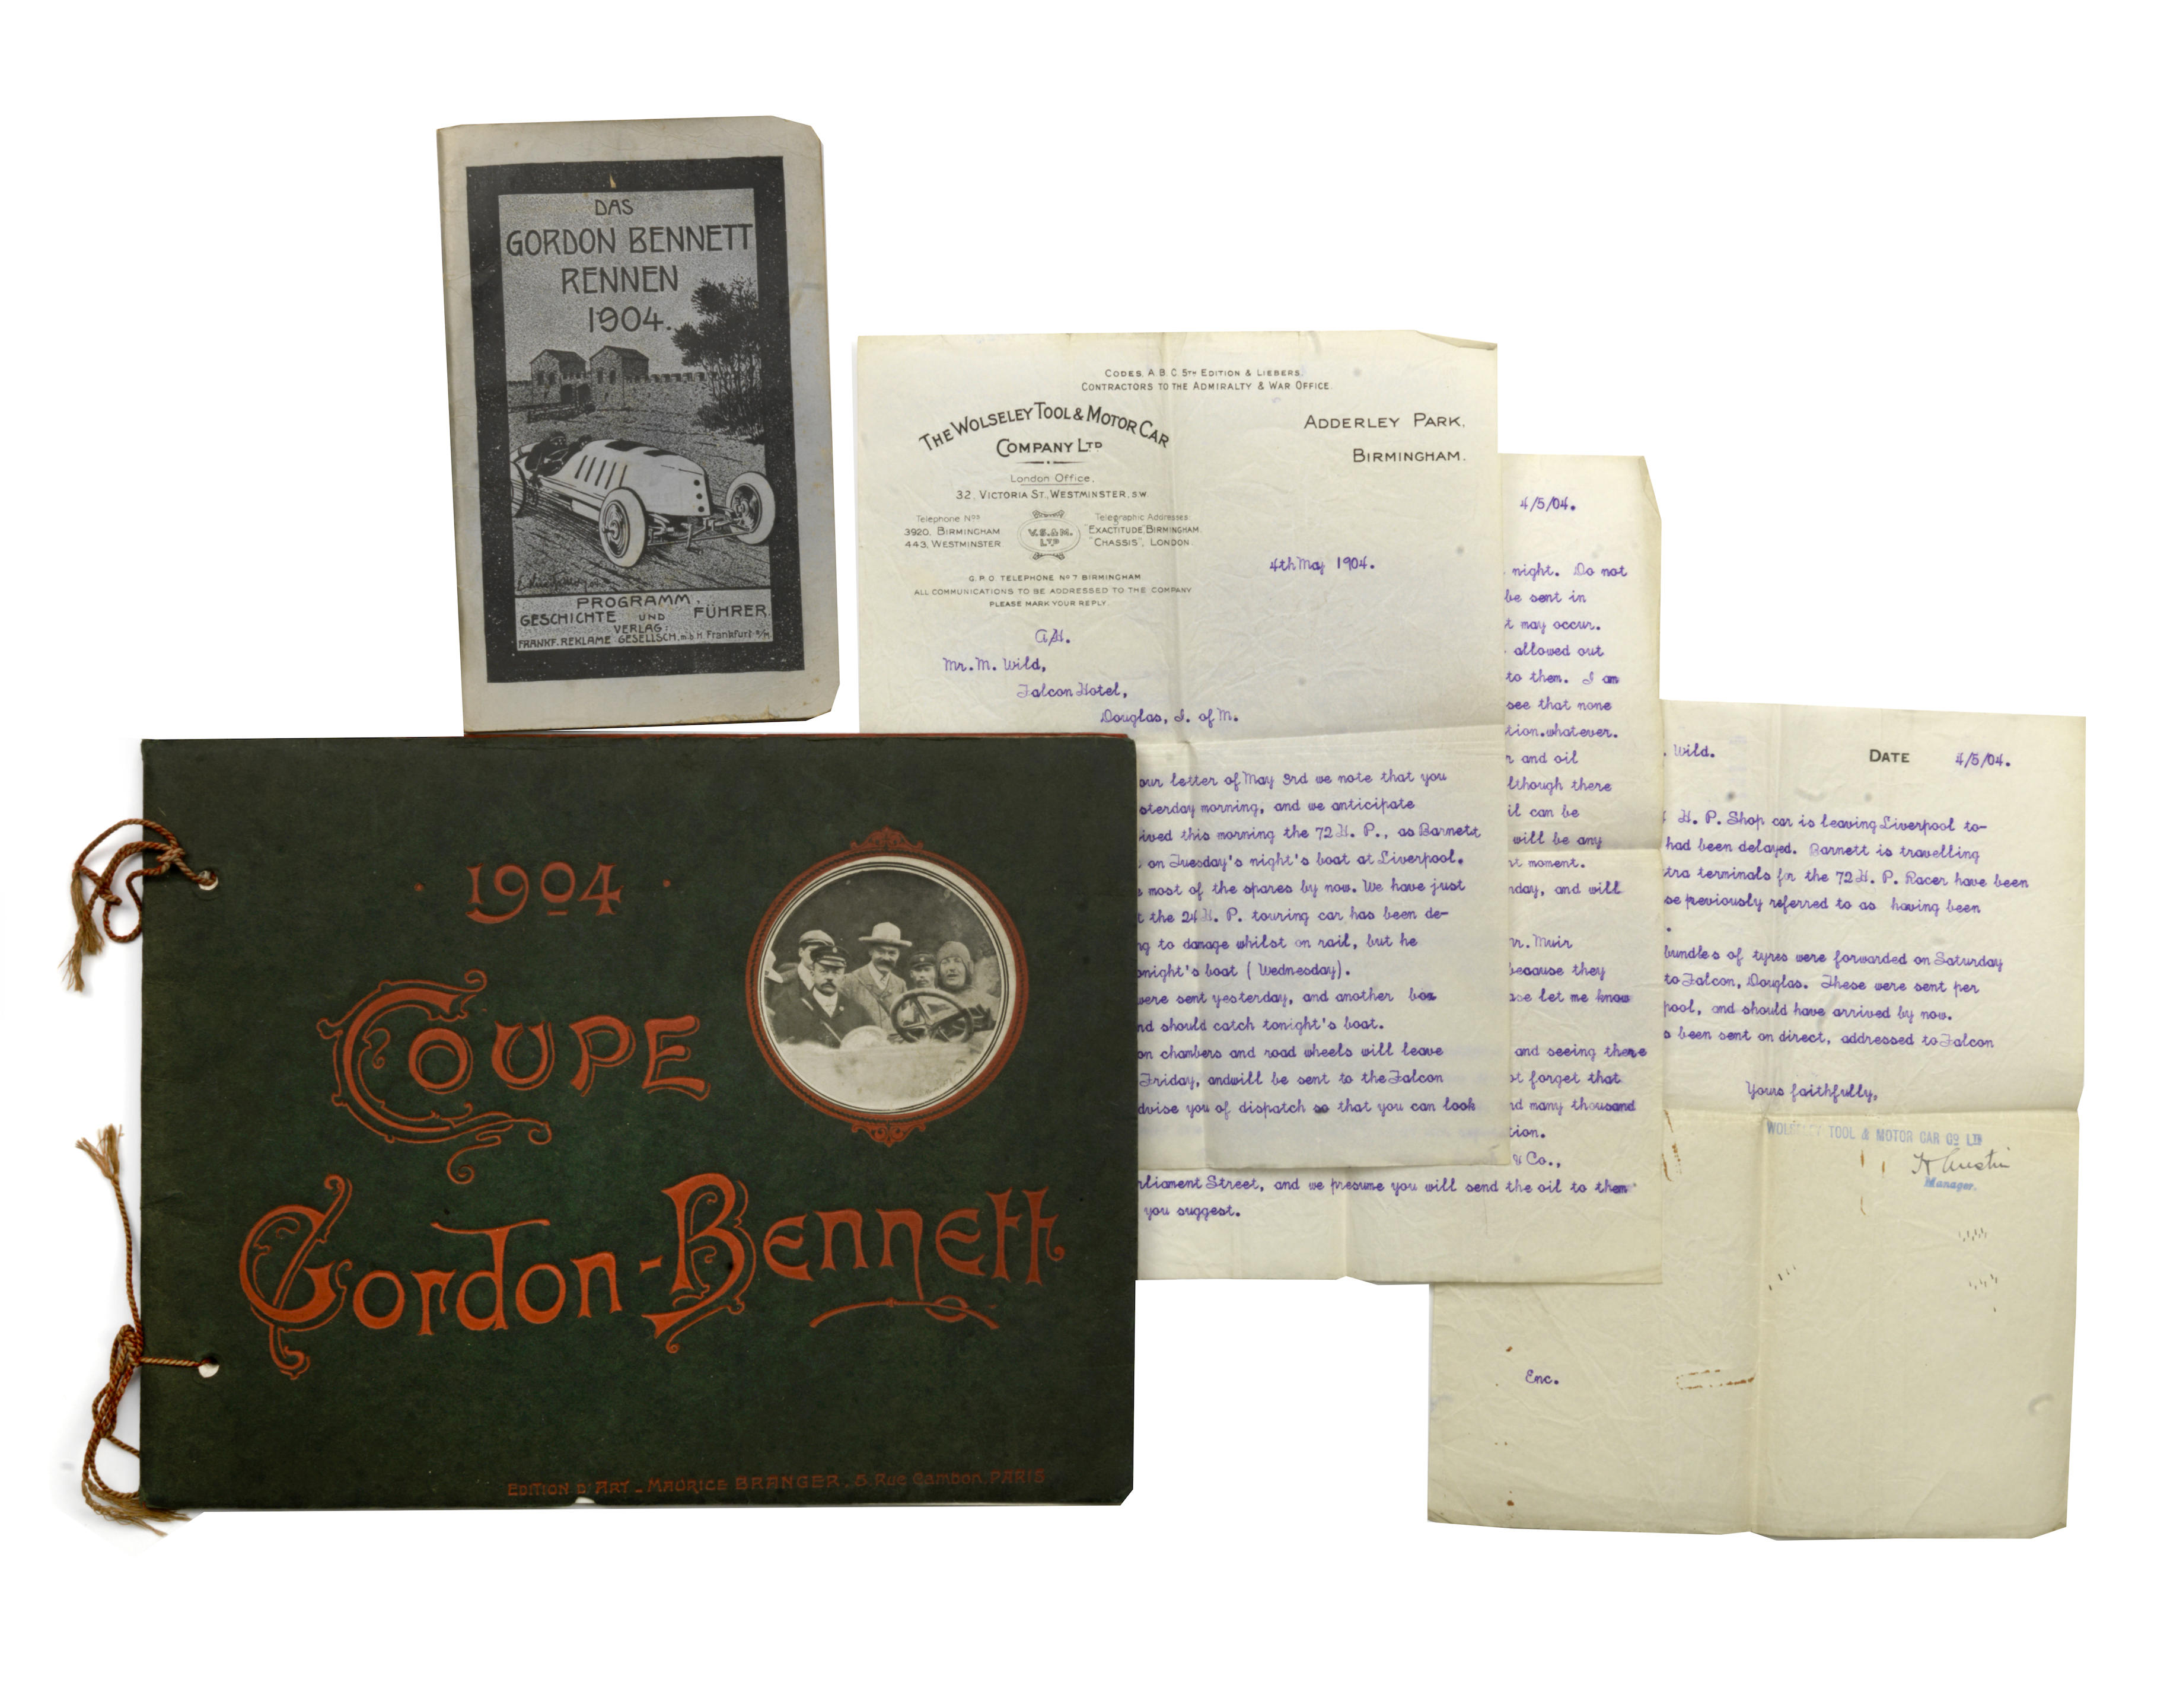 DAS
GORDON BENNETT
RENNEN
1904.
PROGRAMM.
GESCHICHTE UND FÜHRER.
VERLAG:
FRANKF. REKLAME GESELLSCH. m.b.H. Frankfurt a/M.
1904
COUPE
Gordon-Bennett
EDITION D'ART - MAURICE BRANGER. 5. Rue Cambon. PARIS
CODES, A.B.C. 5TH EDITION & LIEBERS.
CONTRACTORS TO THE ADMIRALTY & WAR OFFICE.
THE WOLSELEY TOOL & MOTOR CAR
COMPANY LTD
ADDERLEY PARK,
BIRMINGHAM.
London Office,
32, VICTORIA ST., WESTMINSTER, S.W.
Telephone Nos
3920, BIRMINGHAM
443, WESTMINSTER.
V.S.&M.
LTD
Telegraphic Addresses
"EXACTITUDE", BIRMINGHAM.
"CHASSIS", LONDON.
G.P.O. TELEPHONE No 7 BIRMINGHAM.
ALL COMMUNICATIONS TO BE ADDRESSED TO THE COMPANY
PLEASE MARK YOUR REPLY
4th May 1904.
A/H.
Mr. M. Wild,
Falcon Hotel,
Douglas, I. of M.
our letter of May 3rd we note that you
sterday morning, and we anticipate
ived this morning the 72 H. P., as Barnett
on Tuesday's night's boat at Liverpool.
most of the spares by now. We have just
t the 24 H. P. touring car has been de-
ng to damage whilst on rail, but he
onight's boat ( Wednesday).
were sent yesterday, and another box
nd should catch tonight's boat.
on chambers and road wheels will leave
Friday, andwill be sent to the Falcon
dvise you of dispatch so that you can look
4/5/04.
night. Do not
be sent in
t may occur.
allowed out
to them. I am
see that none
tion.whatever.
r and oil
lthough there
il can be
will be any
nt moment.
nday, and will
Mr. Muir
because they
ase let me know
and seeing there
ot forget that
nd many thousand
tion.
& Co.,
rliament Street, and we presume you will send the oil to them
you suggest.
. Wild.
DATE 4/5/04.
H. P. Shop car is leaving Liverpool to-
had been delayed. Barnett is travelling
tra terminals for the 72 H. P. Racer have been
se previously referred to as having been
.
bundles of tyres were forwarded on Saturday
to Falcon, Douglas. These were sent per
pool, and should have arrived by now.
s been sent on direct, addressed to Falcon
Yours faithfully,
WOLSELEY TOOL & MOTOR CAR CO LTD
H Austin
Manager.
Enc.